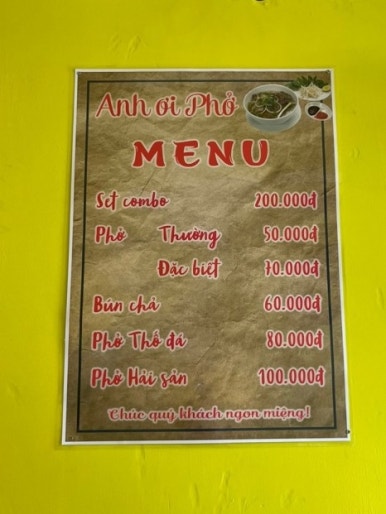 Anh ơi Phở
MENU
Set combo 200.000đ
Phở Thường 50.000đ
Đặc biệt 70.000đ
Bún chả 60.000đ
Phở Thố đá 80.000đ
Phở Hải sản 100.000đ
Chúc quý khách ngon miệng!